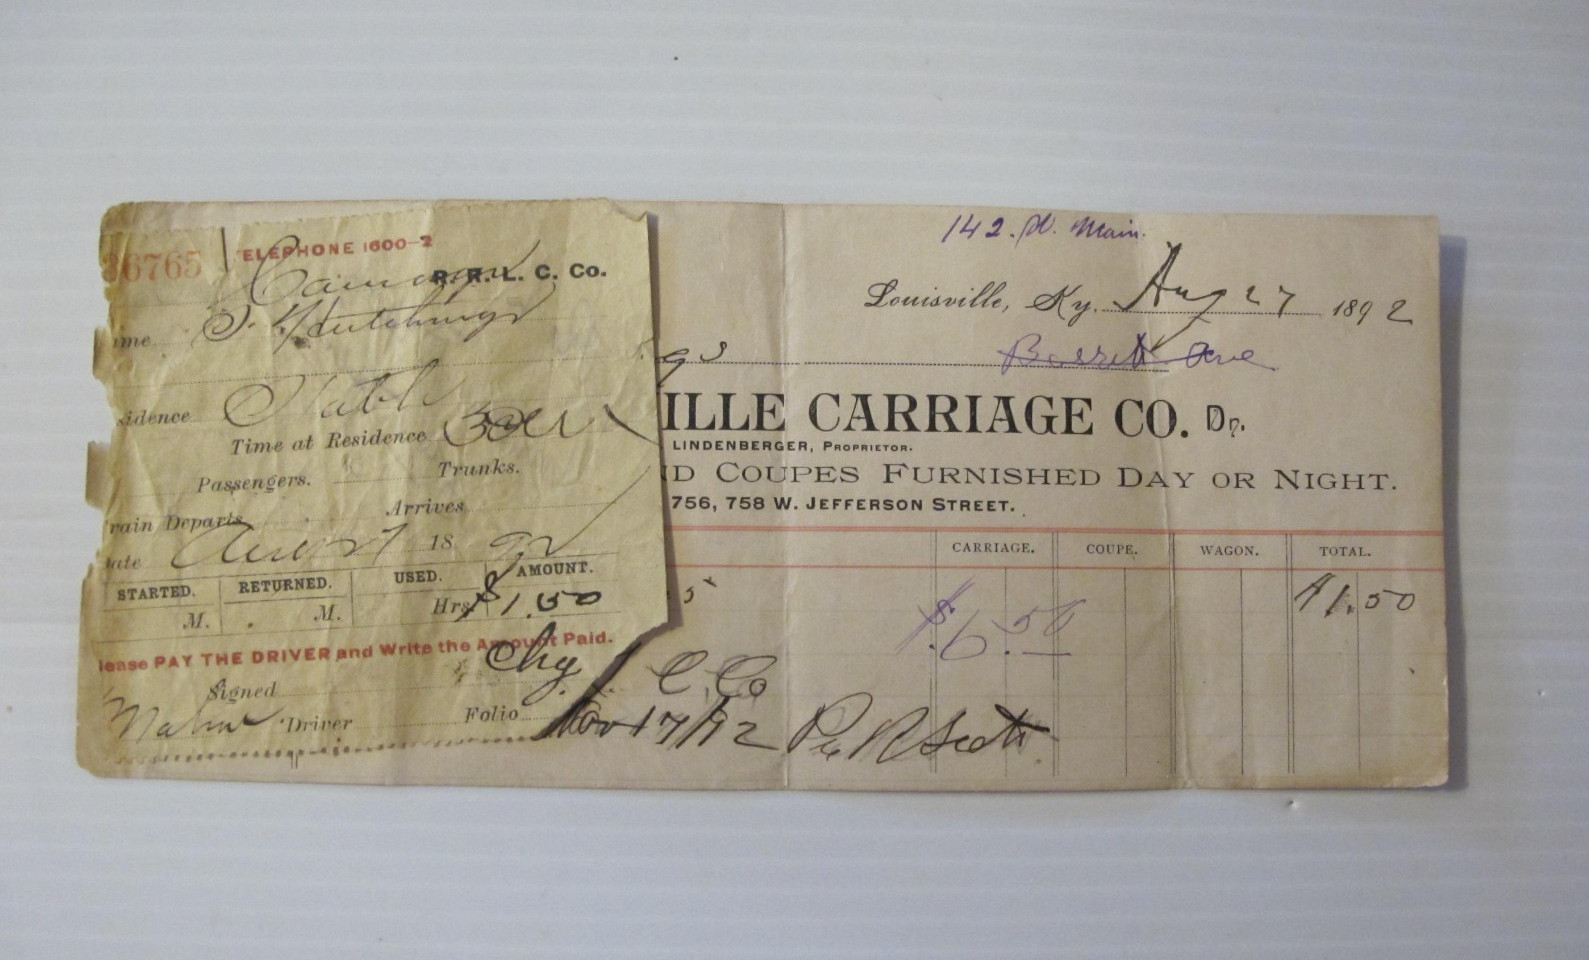 6765
ELEPHONE 1600-2
R. R. L. C. Co.
ame S. Hutchings
sidence Stable
Time at Residence
Passengers. Trunks.
rain Departs Arrives
ate August 7 18 92
STARTED. RETURNED. USED. AMOUNT.
M. M. Hrs $1.50
lease PAY THE DRIVER and Write the Amount Paid.
Signed
Driver Folio
142. W. Main.
Louisville, Ky. Aug 27 1892
gs Barrett Ave
ILLE CARRIAGE CO. Dr.
LINDENBERGER, PROPRIETOR.
ND COUPES FURNISHED DAY OR NIGHT.
756, 758 W. JEFFERSON STREET.
CARRIAGE. COUPE. WAGON. TOTAL.
5 $1.50
$6.50
C. Co
Nov 17/92 Per R Scott